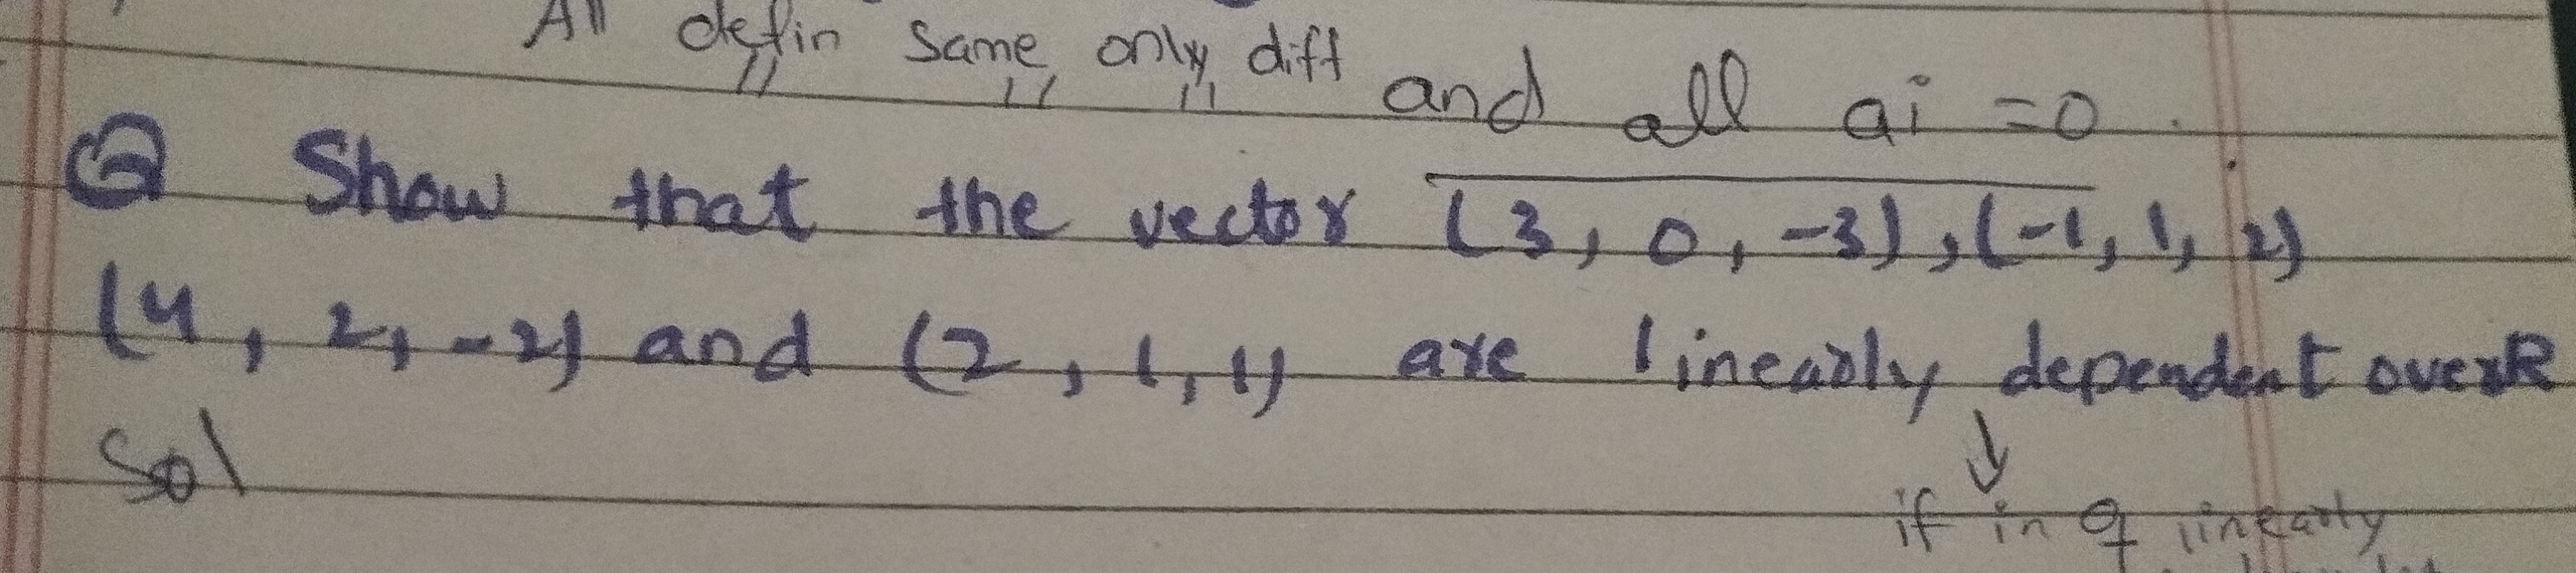 All defin same only diff and all ai =0.
Q Show that the vector (3, 0, -3), (-1, 1, 2)
(4, 2, -2) and (2, 1, 1) are linearly dependent over R
Sol
if in q linearly